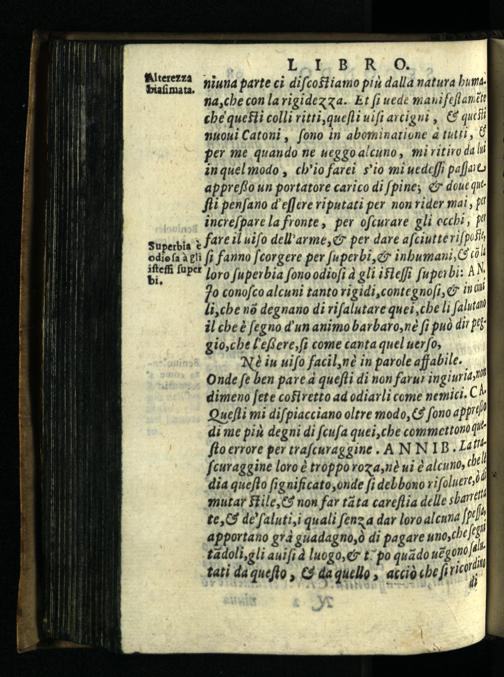 LIBRO.
Alterezza
biasimata.
niuna parte ci discostiamo più dalla natura huma-
na, che con la rigidezza. Et si uede manifestamẽte
che questi colli ritti, questi uisi arcigni, & questi
nuoui Catoni, sono in abominatione à tutti, &
per me quando ne ueggo alcuno, mi ritiro da lui
in quel modo, ch'io farei s'io mi uedessi passare
appresso un portatore carico di spine; & doue que-
sti pensano d'essere riputati per non rider mai, per
increspare la fronte, per oscurare gli occhi, per
fare il uiso dell'arme, & per dare asciutte risposte,
Superbia è
odiosa à gli
istessi super
bi.
si fanno scorgere per superbi, & inhumani, & cõ la
loro superbia sono odiosi à gli istessi superbi: AN.
Io conosco alcuni tanto rigidi, contegnosi, & inciui
li, che nõ degnano di risalutare quei, che li salutano
il che è segno d'un animo barbaro, nè si può dir peg-
gio, che l'essere, si come canta quel uerso,
Nè iu uiso facil, nè in parole affabile.
Onde se ben pare à questi di non farui ingiuria, non
dimeno sete costretto ad odiarli come nemici. CA.
Questi mi dispiacciano oltre modo, & sono appresso
di me più degni di scusa quei, che commettono que-
sto errore per trascuraggine. ANNIB. La tra-
scuraggine loro è troppo roza, nè ui è alcuno, che li
dia questo significato, onde si debbono risoluere, ò di
mutar stile, & non far tãta carestia delle sbarretta
te, & de' saluti, i quali senza dar loro alcuna spesa,
apportano grã guadagno, ò di pagare uno, che segui
tãdoli, gli auisi à luogo, & t po quãdo uẽgono salu-
tati da questo, & da quello, acciò che si ricordino
di